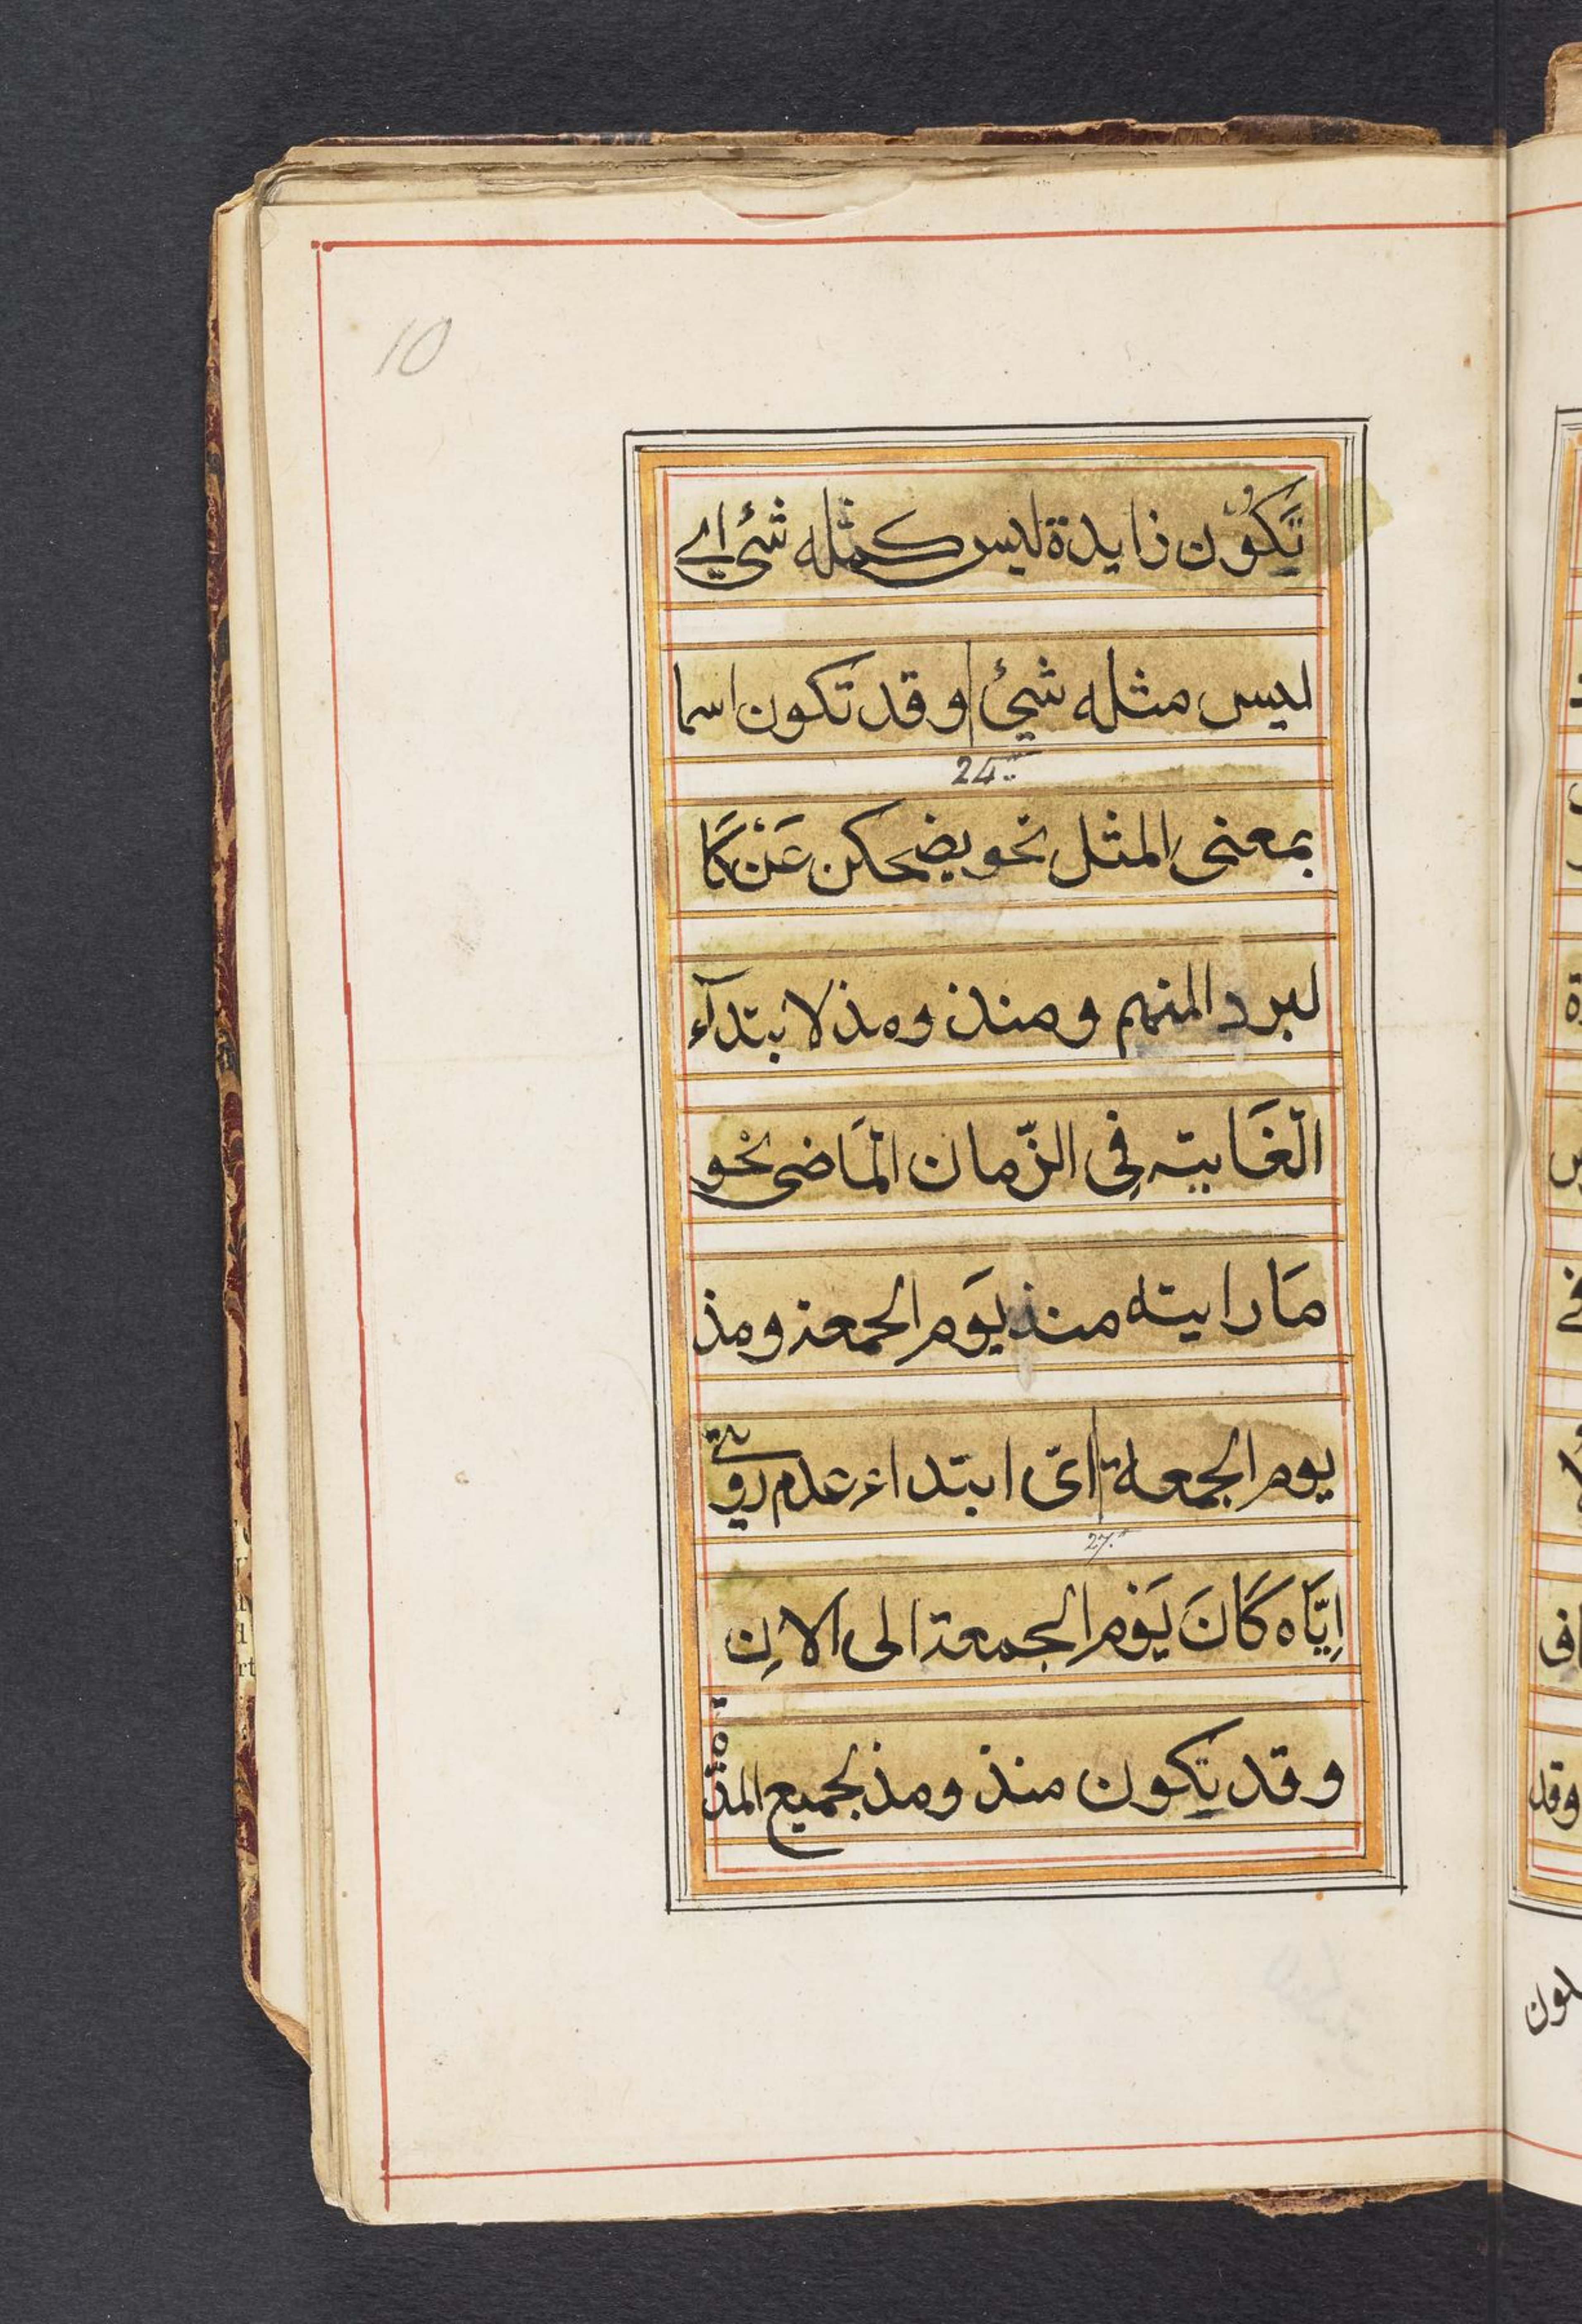 10
تَكُوْن زايدة ليس كمثله شئ اے
ليس مثله شئ وقد تكون اسما
24
بمعنى المثل نحو يضحكن عَنْ كَا
لبرد المنهم ومنذ ومذ لابتدآء
الغَاية فِى الزّمان المَاضى نحْو
مَا رايته منذ يَوم الجمعة ومذ
يوم الجمعة اى ابتداء عدم رويتى
27
اِيَّاه كَانَ يَوْم الجمعة الى الان
وقد يكون منذ ومذ لجميع المدة